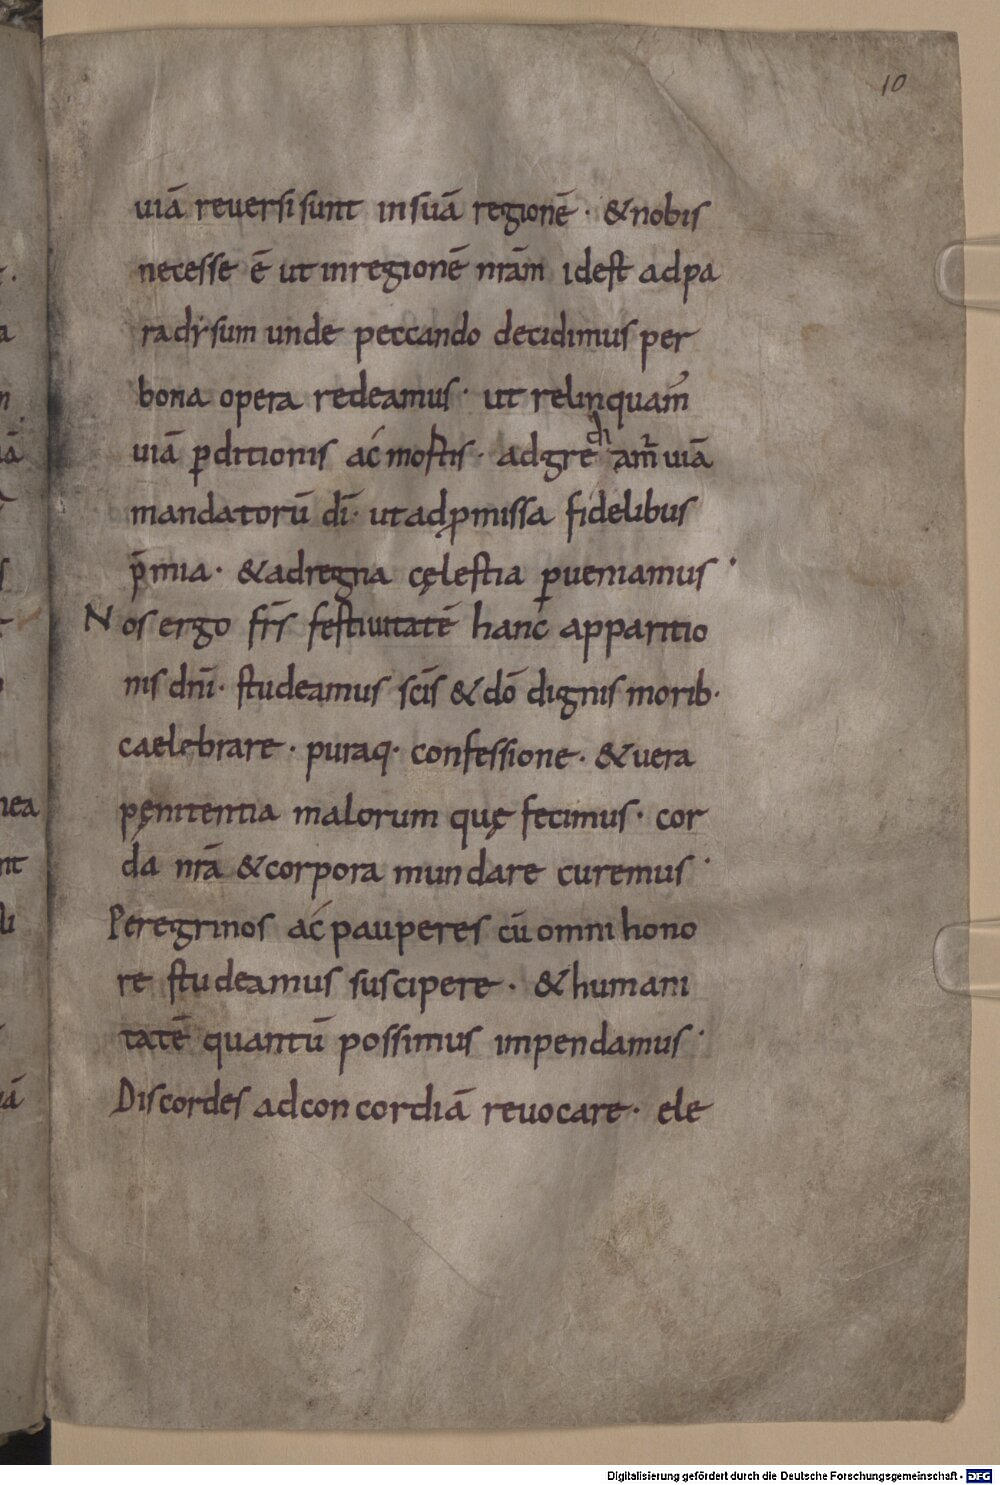 10
uiā reuersi sunt in suā regionē · & nobis
necesse ē ut inregionē nr̄am idest adpa
radysum unde peccando decidimus per
bona opera redeamus · ut relinquam̄
uiā ꝑditionis ac mortis · adgredi am̄ uiā
mandatorū dī · ut adꝓmissa fidelibus
p̄mia · & adregna cęlestia ꝑueniamus ·
Nos ergo fr̄s festiuitatē hanc apparitio
nis dnī · studeamus scīs & dō dignis morib·
caelebrare · puraq· confessione · & uera
pęnitentia malorum quę fecimus · cor
da nr̄a & corpora mundare curemus ·
Peregrinos ac pauperes cū omni hono
re studeamus suscipere · & humani
tatē quantū possimus impendamus ·
Discordes adconcordiā reuocare · ele
a
nea
nt
li
Digitalisierung gefördert durch die Deutsche Forschungsgemeinschaft - DFG